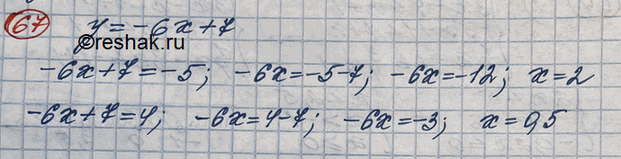 67 y=-6x+7
©reshak.ru
-6x+7=-5; -6x=-5-7; -6x=-12; x=2
-6x+7=4; -6x=4-7; -6x=-3; x=0,5